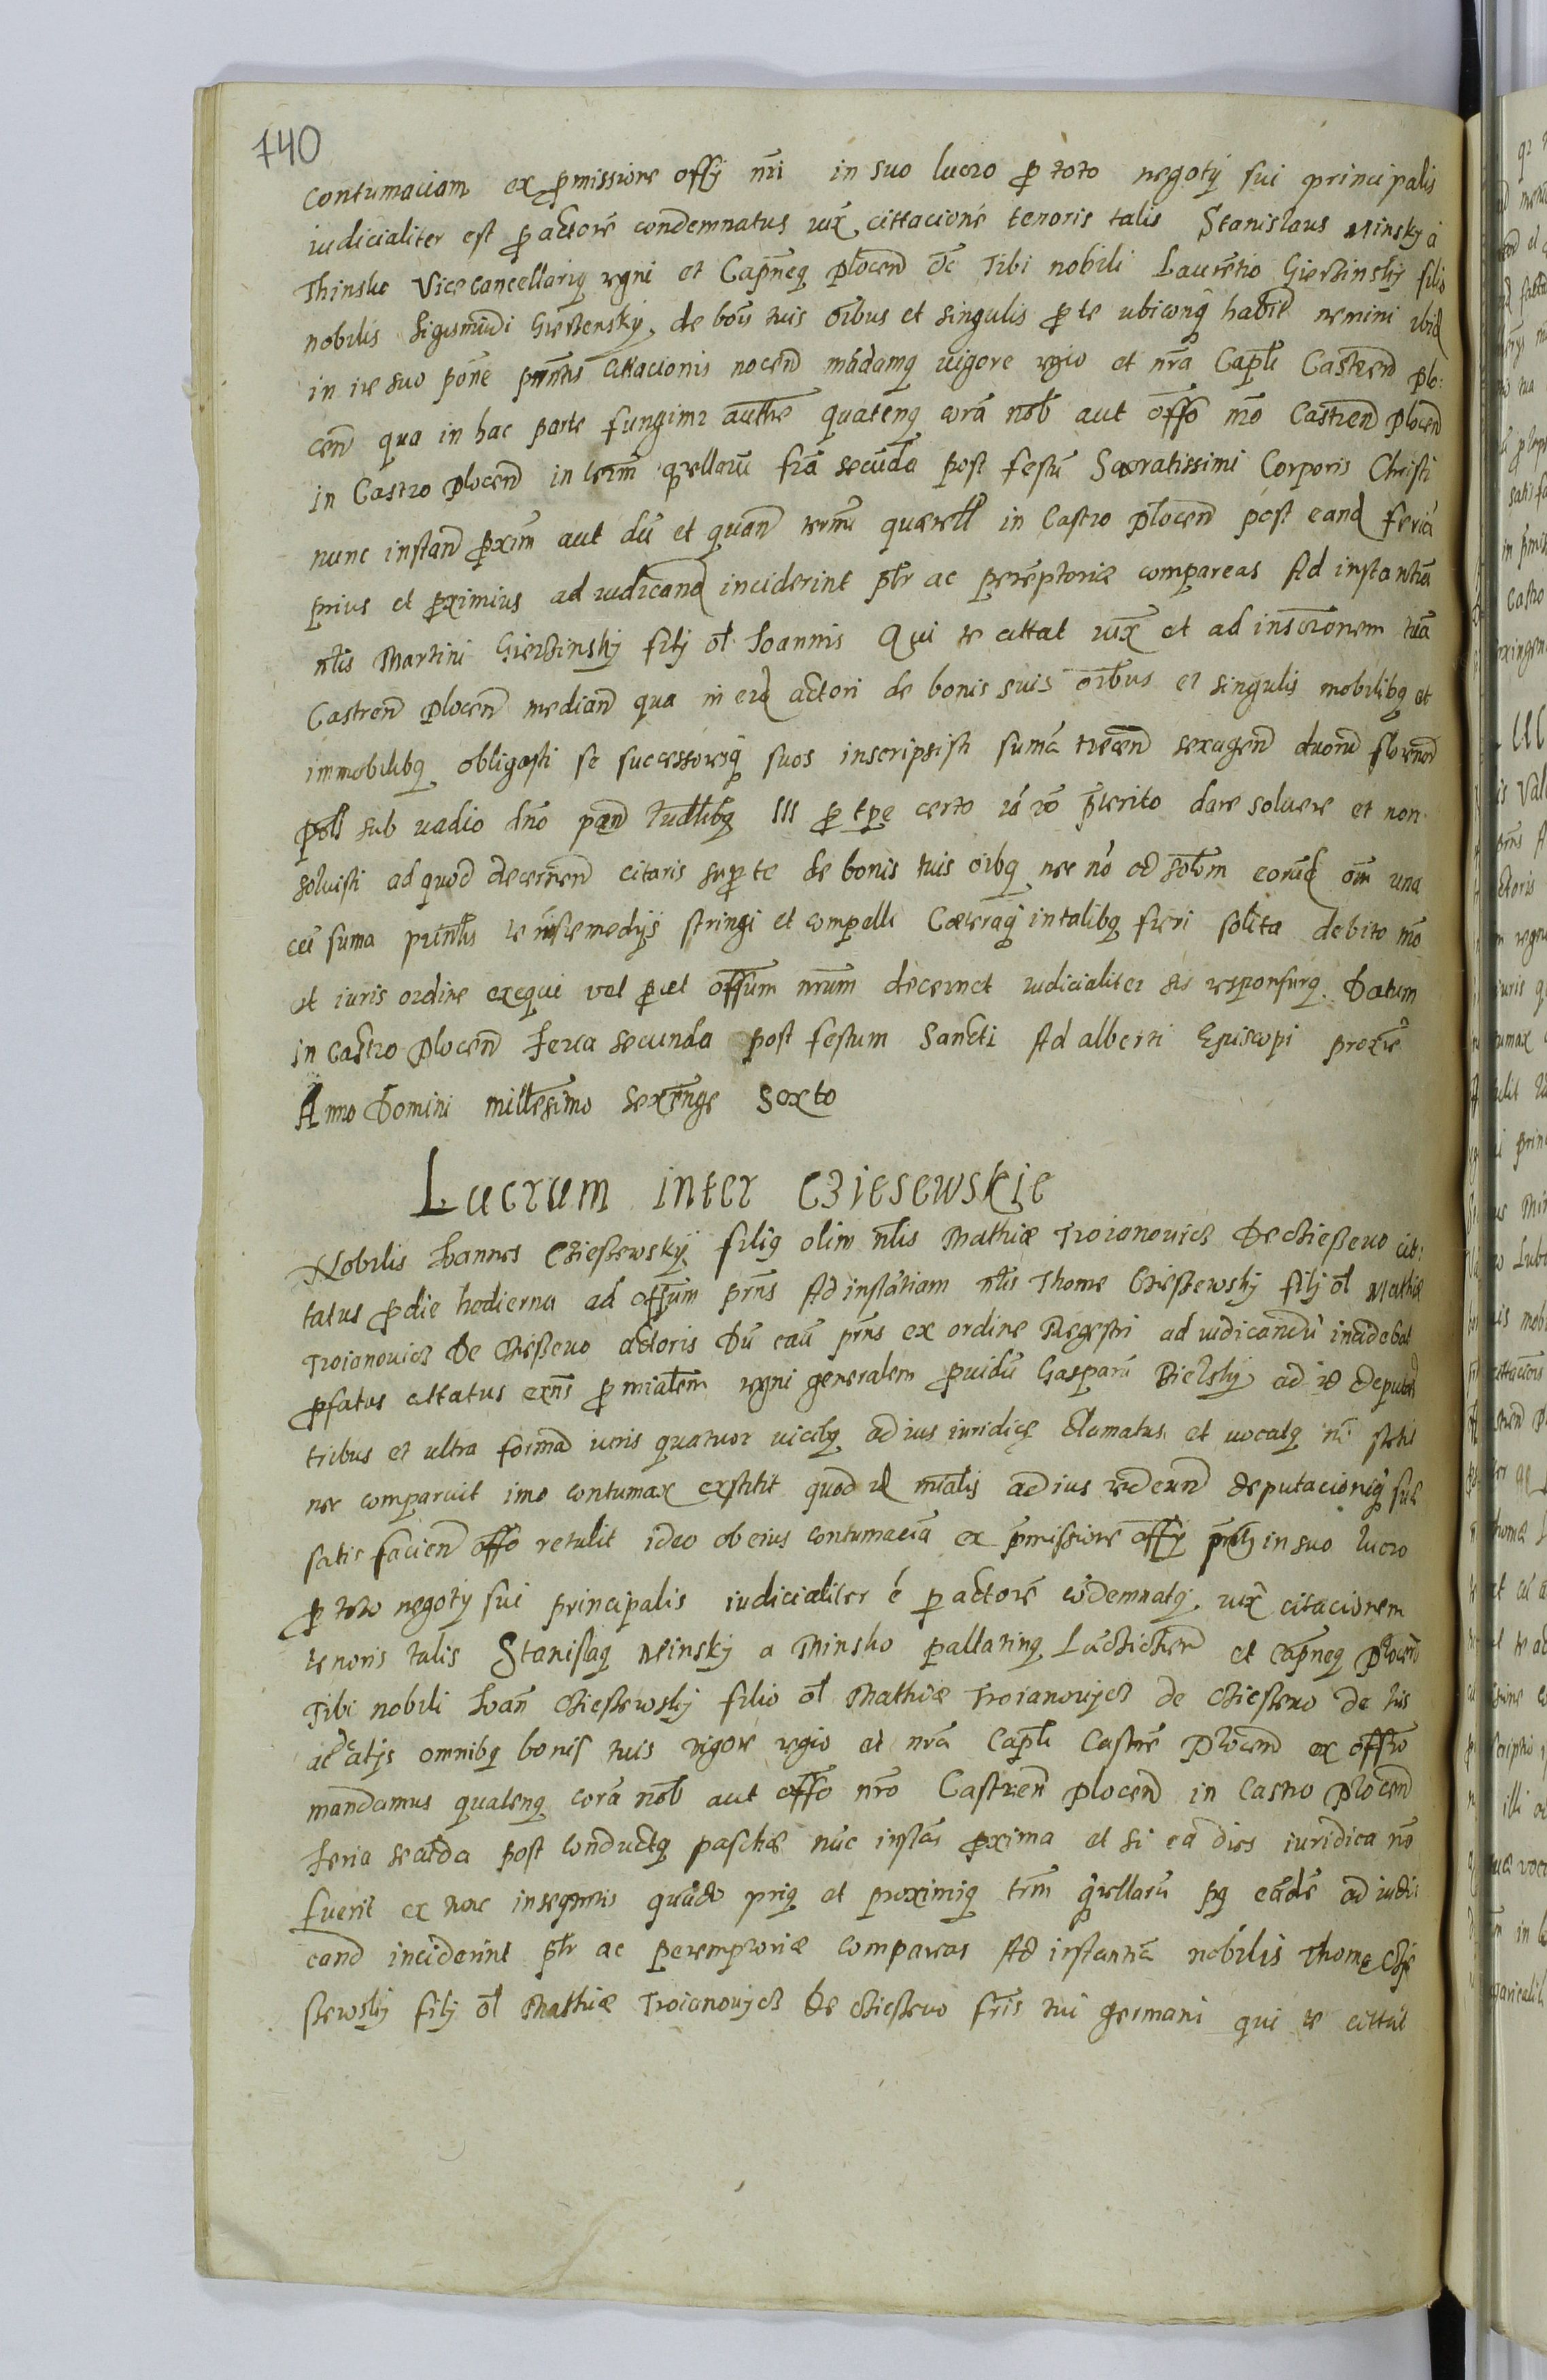 140
contumaciam ex pmissione offy nri in suo lucro p toto negoty sui principalis
iudicialiter est p actore condemnatus iux cittacione tenoris talis Stanislaus Minsky a
Minsko Vicecancellariq regni et Capneq Plocen etc Tibi nobili Laurentio Gierzinsky filio
nobilis Sigismudi Gierzensky de bois tuis oibus et singulis p te ubicunq habit nemini ibid
in ire suo pone pntis cittacionis nocen madamq uigore regio et nra Capli Castren Plo:
cen qua in hac parte fungimr authte quatenq cora nob aut offo nro Castren Plocen
in Castro Plocen in term querellaru fria secuda post festu Sacratissimi Corporis Christi
nunc instan pxim aut du et quan termi quaerell in Castro Plocen post eand feria
prius et pximius ad iudicand inciderint pltr ac pereptoriae compareas Ad instantia
nlis Martini Gierzinsky fily ol Ioannis Qui te cittat iux et ad inscrionem tua
Castren Plocen median qua in eid actori de bonis suis oibus et singulis mobilibq et
immobilibq obligasti se successoresq suos inscripsisti suma trecen sexagen duoru florenor
poll sub uadio dno pan Iudlibq III p tpe certo ia ro pterito dare soluere et non
soluisti ad quod decernen citaris sup te de bonis tuis oibq nec no ad solom eorud oim una
cu suma pntis te iuris remedys stringi et compelli Caeteraq in talibq fieri solita debito mo
et iuris ordine exequi vel p ut offum nrum decernet iudicialiter sis responsurq. Datum
in Castro Plocen Feria secunda post festum Sancti Adalberti Episcopi proxie
Anno Domini millesimo sexenge sexto
Lucrum inter Cziesewskie
Nobilis Ioannes Cziessewsky filiq olim nlis Mathiae Troianovicz De Cziessevo cit:
tatus p die hodierna ad offum prns Ad instatiam nlis Thome Cziessewsky fily ol Mathiae
Troianovicz De Cziessevo actoris Du cau prns ex ordine Regestri ad iudicandu incidebat
pfatus cittatus exns p mialem regni generalem puidu Gasparu Bielsky ad id deputat
tribus et ultra forma iuris quatuor uicibq ad ius iuridice clamatus et uocatq no stetit
nec comparuit imo contumax exstitit quod id mialis ad ius redeun deputacioniq sue
satis facien offo retulit ideo ob eius contumacia ex pmissione offy prntis in suo lucro
p toto negoty sui principalis iudicialiter e p actore codemnatq iux citacionem
tenoris talis Stanislaq Minsky a Minsko pallatinq Lacicien et Capneq Plocen
Tibi nobili Ioan Cziessewsky filio ol Mathiae Troianovycz de Cziessevo de his
ac alys omnibq bonis tuis uigore regio et nra Capli Castre Plocen ex offio
mandamus quatenq cora nob aut offo nro Castren Plocen in Castro Plocen
Feria secuda post Conductq paschae nuc insta pxima et si ea dies iuridica no
fuerit ex tunc insequtis quado priq et proximiq trm qrellaru pq eade ad iudi
cand inciderint pltr ac peremptoriae compareas Ad instantia nobilis Thome Czie
ssewsky fily ol Mathiae Troianovycz de Cziessevo fris tui germani qui te cittat